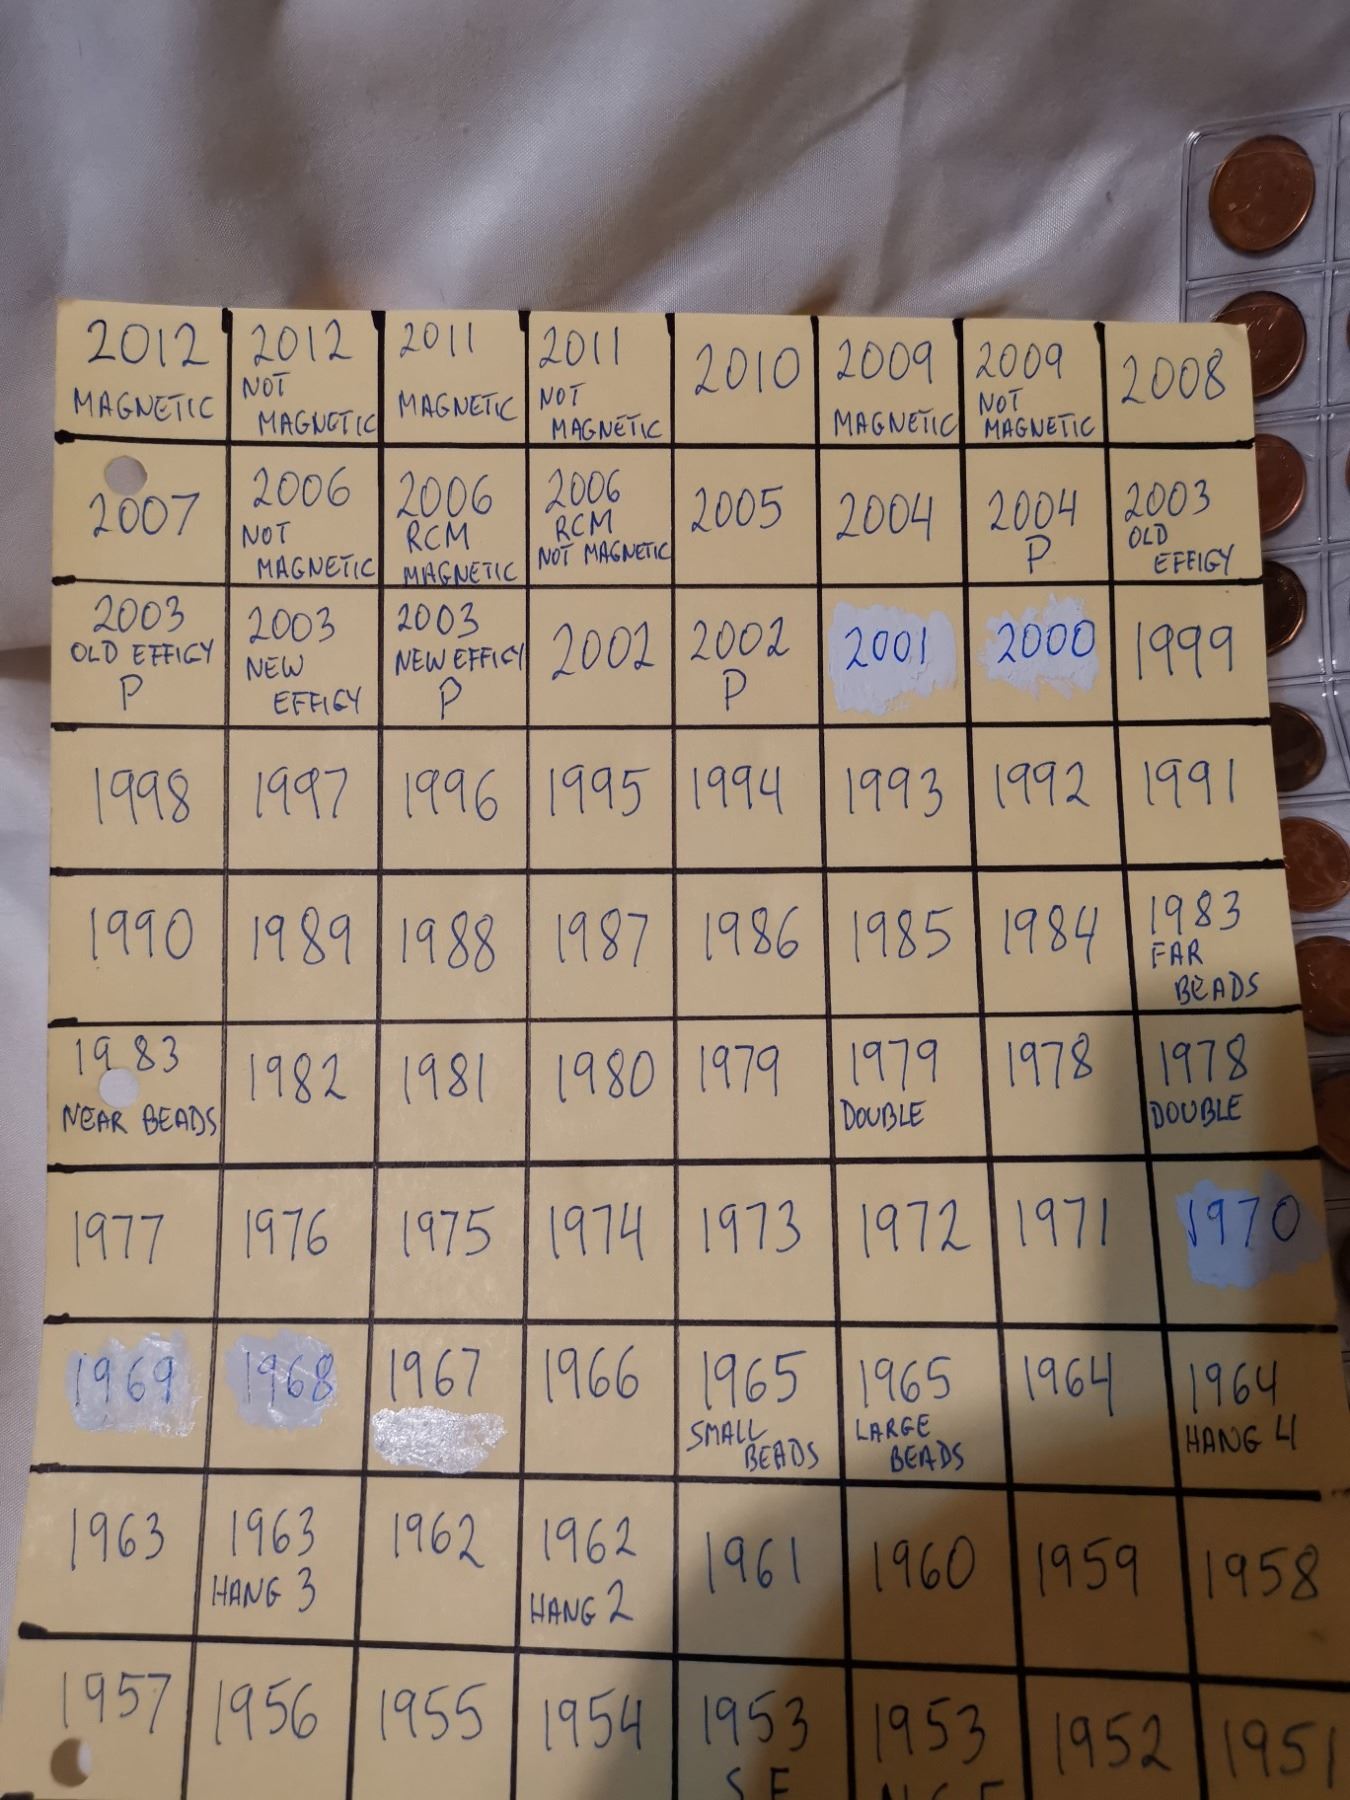 2012
MAGNETIC
2012
NOT
MAGNETIC
2011
MAGNETIC
2011
NOT
MAGNETIC
2010
2009
MAGNETIC
2009
NOT
MAGNETIC
2008
2007
2006
NOT
MAGNETIC
2006
RCM
MAGNETIC
2006
RCM
NOT MAGNETIC
2005
2004
2004
P
2003
OLD
EFFIGY
2003
OLD EFFIGY
P
2003
NEW
EFFIGY
2003
NEW EFFIGY
P
2002
2002
P
2001
2000
1999
1998
1997
1996
1995
1994
1993
1992
1991
1990
1989
1988
1987
1986
1985
1984
1983
FAR
BEADS
1983
NEAR BEADS
1982
1981
1980
1979
1979
DOUBLE
1978
1978
DOUBLE
1977
1976
1975
1974
1973
1972
1971
1970
1969
1968
1967
1966
1965
SMALL
BEADS
1965
LARGE
BEADS
1964
1964
HANG 4
1963
1963
HANG 3
1962
1962
HANG 2
1961
1960
1959
1958
1957
1956
1955
1954
1953
S F
1953
1952
1951